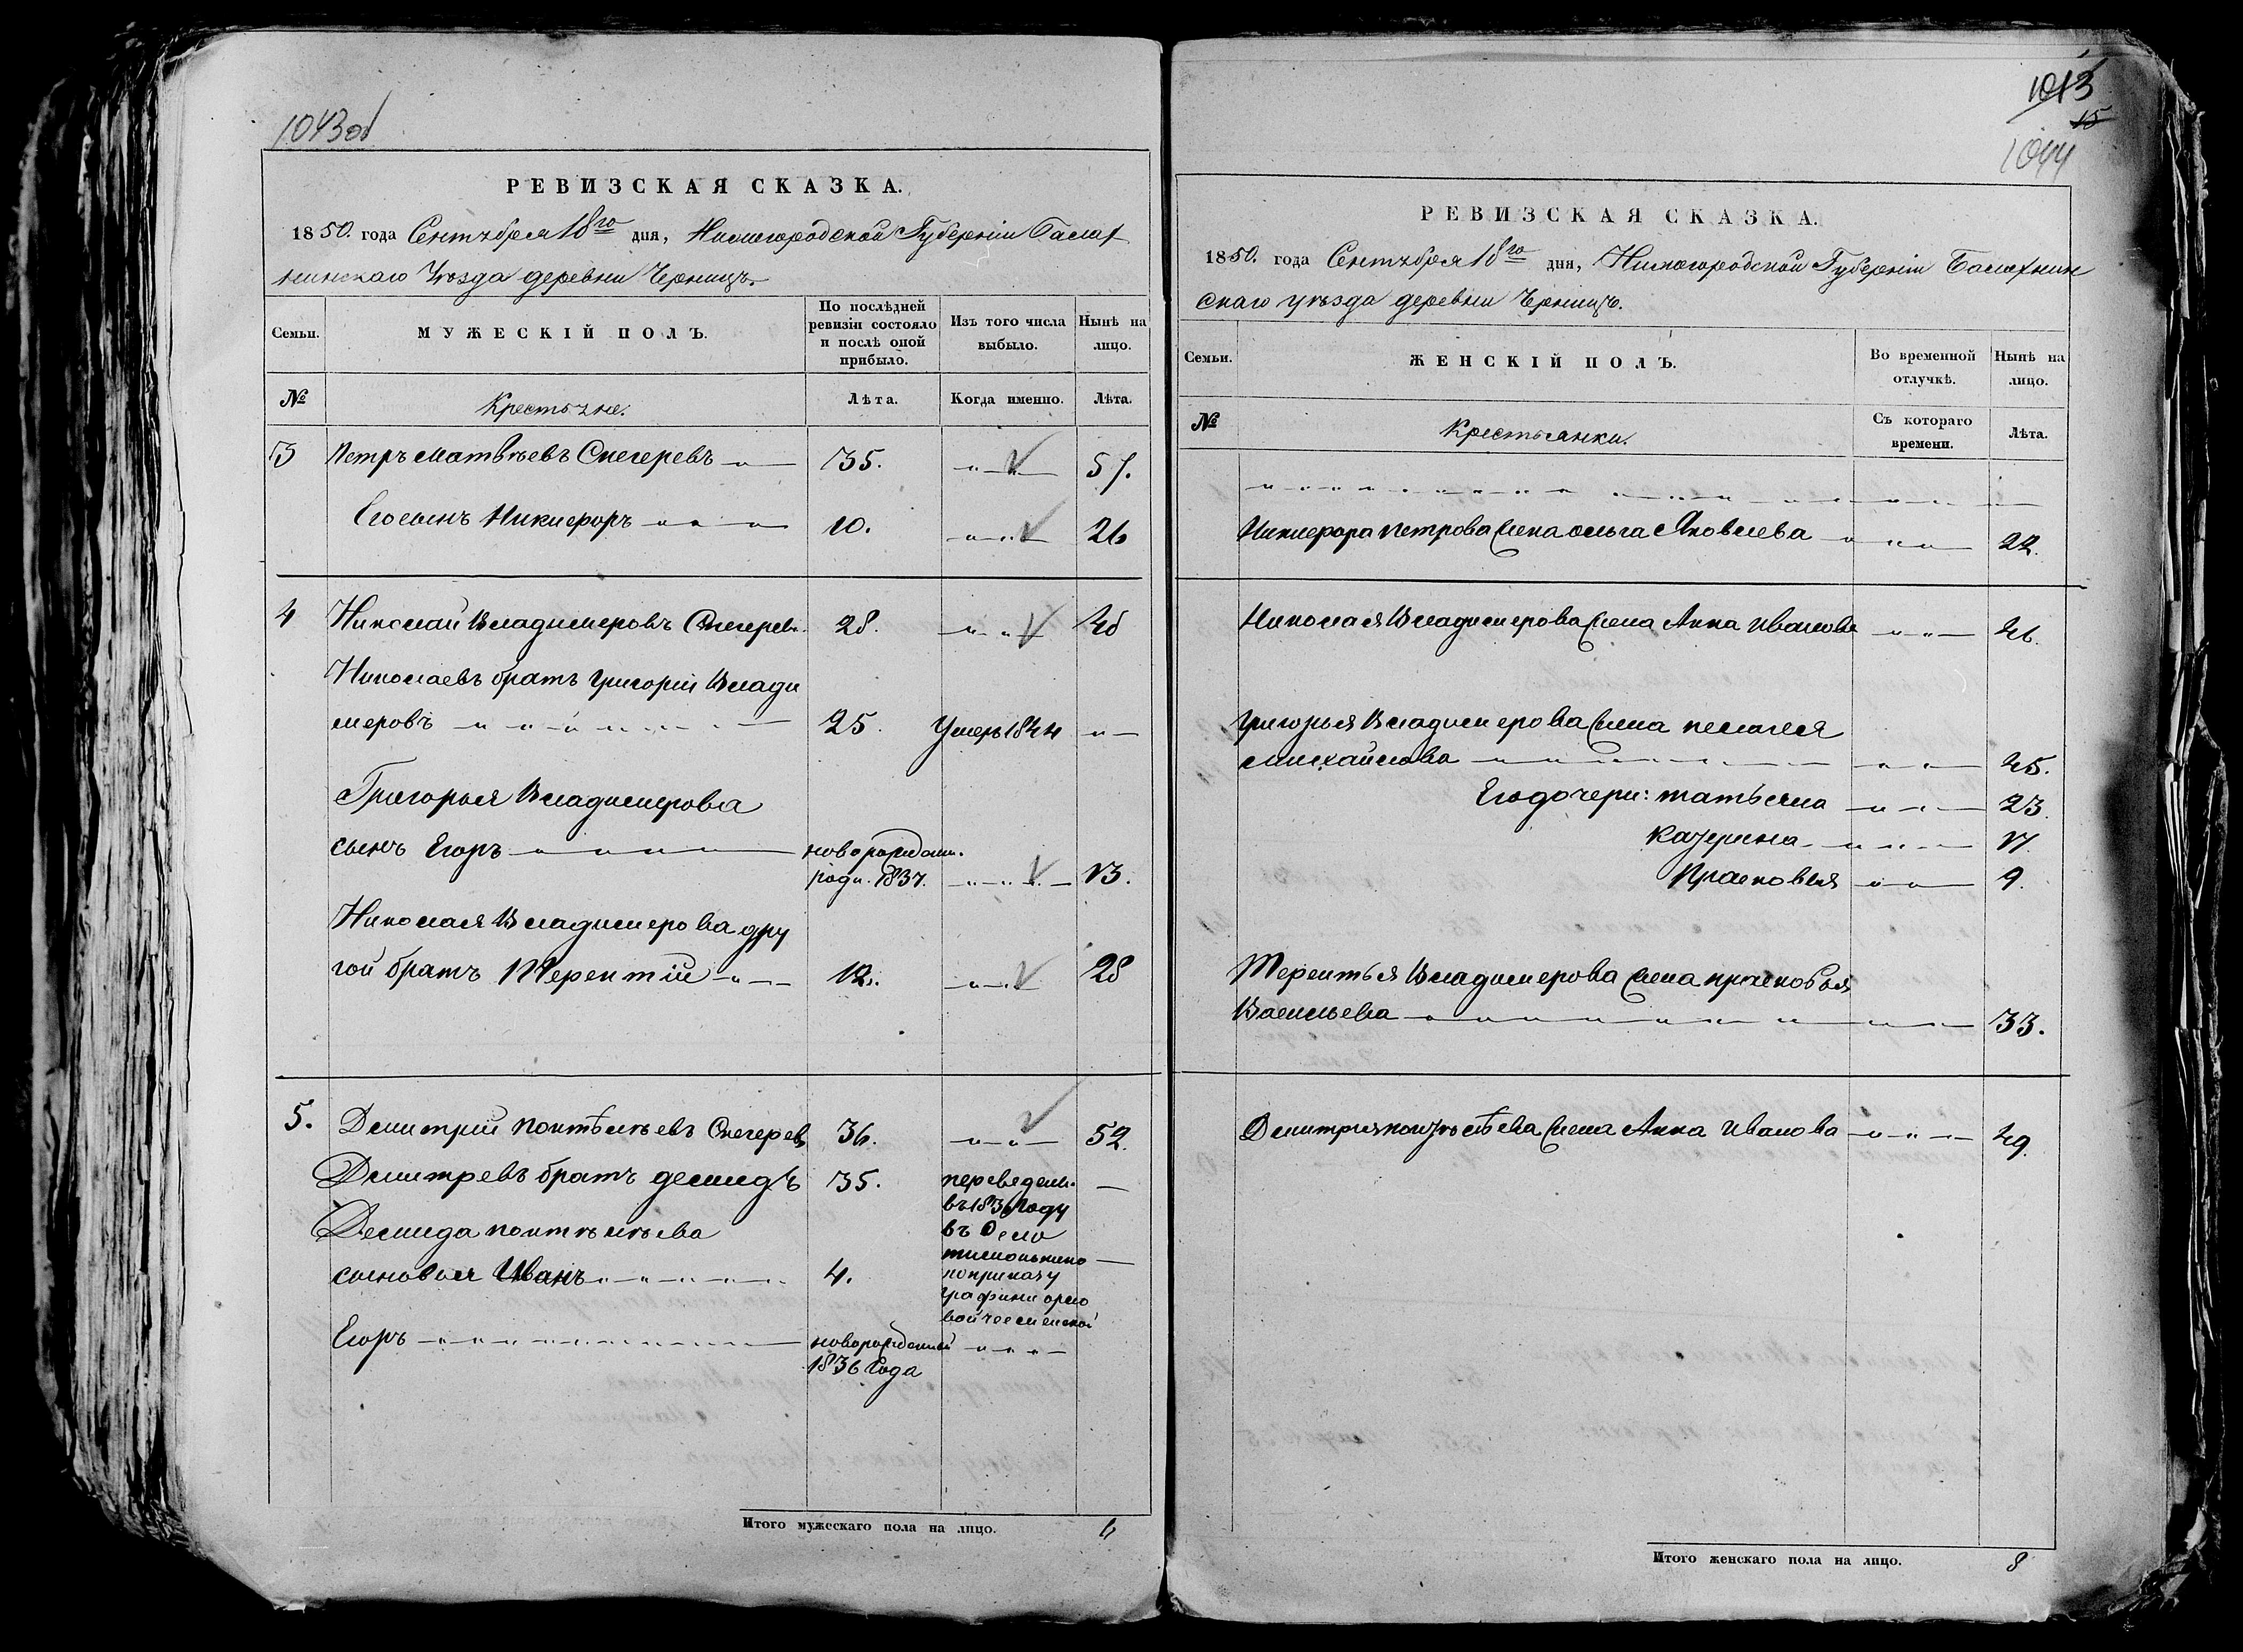 1043 об
РЕВИЗСКАЯ СКАЗКА.
1850. года Сентября 18го дня, Нижегородской Губернiи Балах
нинскаго Уѣзда деревни Черницъ.
Семьи.
МУЖЕСКІЙ ПОЛЪ.
По послѣдней ревизіи состояло и послѣ оной прибыло.
Изъ того числа выбыло.
Нынѣ на лицо.
№
Крестьяне.
Лѣта.
Когда именно.
Лѣта.
3 Петръ Матвѣевъ Снегеревъ 35. 51.
Его сынъ Никифоръ 10. 26
4 Николай Владимеровъ Снегерев. 28.
Николаевъ братъ Григорій Влади
меровъ 25. Умеръ 1844
Григорья Владимерова
сынъ Егоръ новорожден.
роди. 1837. 13.
Николая Владимерова дру
гой братъ Терентій 12. 28
5. Дмитрій Понтѣлѣевъ Снегерев 36. 52.
Дмитревъ братъ Демидъ 35. переведен.
въ 1836 году
Демида Понтѣлѣева
въ Село
сыновья Иванъ 4.
по приказу
Графини Орло
вой Чесменской
Егоръ новорожденный
1836 Года
Итого мужескаго пола на лицо. 6
1013
15
1044
РЕВИЗСКАЯ СКАЗКА.
1850. года Сентября 18го дня, Нижегородской Губерніи Балахнин
скаго уѣзда деревни Черницъ.
Семьи.
ЖЕНСКІЙ ПОЛЪ.
Во временной отлучкѣ.
Нынѣ на лицо.
№
Крестьянки.
Съ котораго времени.
Лѣта.
Никифора Петрова жена Ольга Яковлева 22.
Николая Владимерова жена Анна Иванова 46.
Григорья Владимерова жена Пелагея
Михайлова 45.
Его дочери: Татьяна 23.
Катерина 17.
Прасковья 9.
Терентья Владимерова жена Прасковья
Васильева 33.
Дмитрия Понтѣлѣева жена Анна Иванова 49.
Итого женскаго пола на лицо. 8